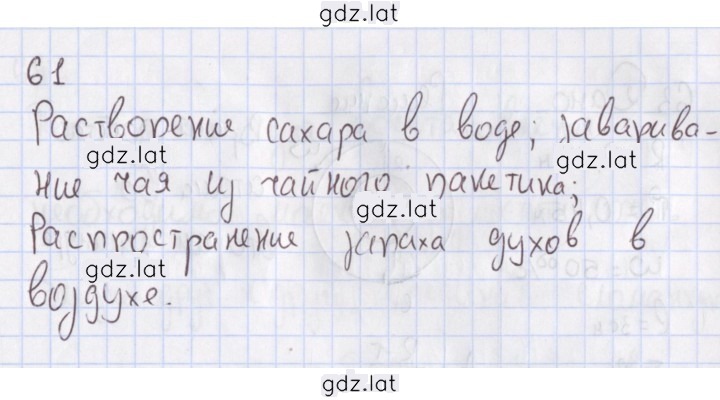 gdz.lat
61
Растворение сахара в воде; заварива-
gdz.lat
ние чая из чайного пакетика;
gdz.lat
Распространение запаха духов в
gdz.lat
воздухе.
gdz.lat